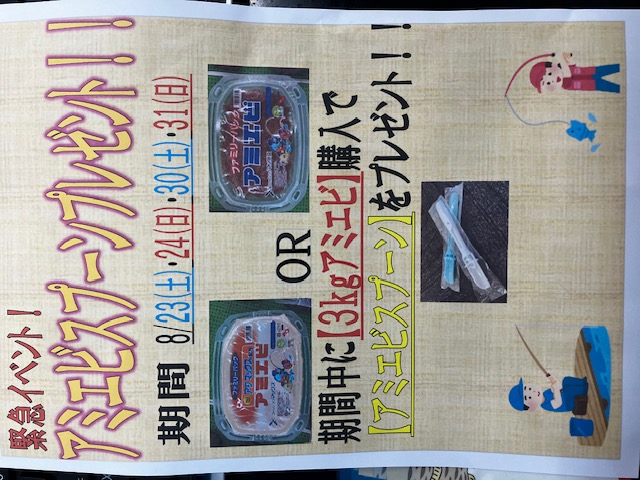 緊急イベント!
アミエビスプーンプレゼント!!
期間 8/23(土)・24(日)・30(土)・31(日)
ファミリーパック
アミエビ
OR
ファミリーパック
アミエビ
期間中に【3kgアミエビ】購入で
【アミエビスプーン】をプレゼント!!